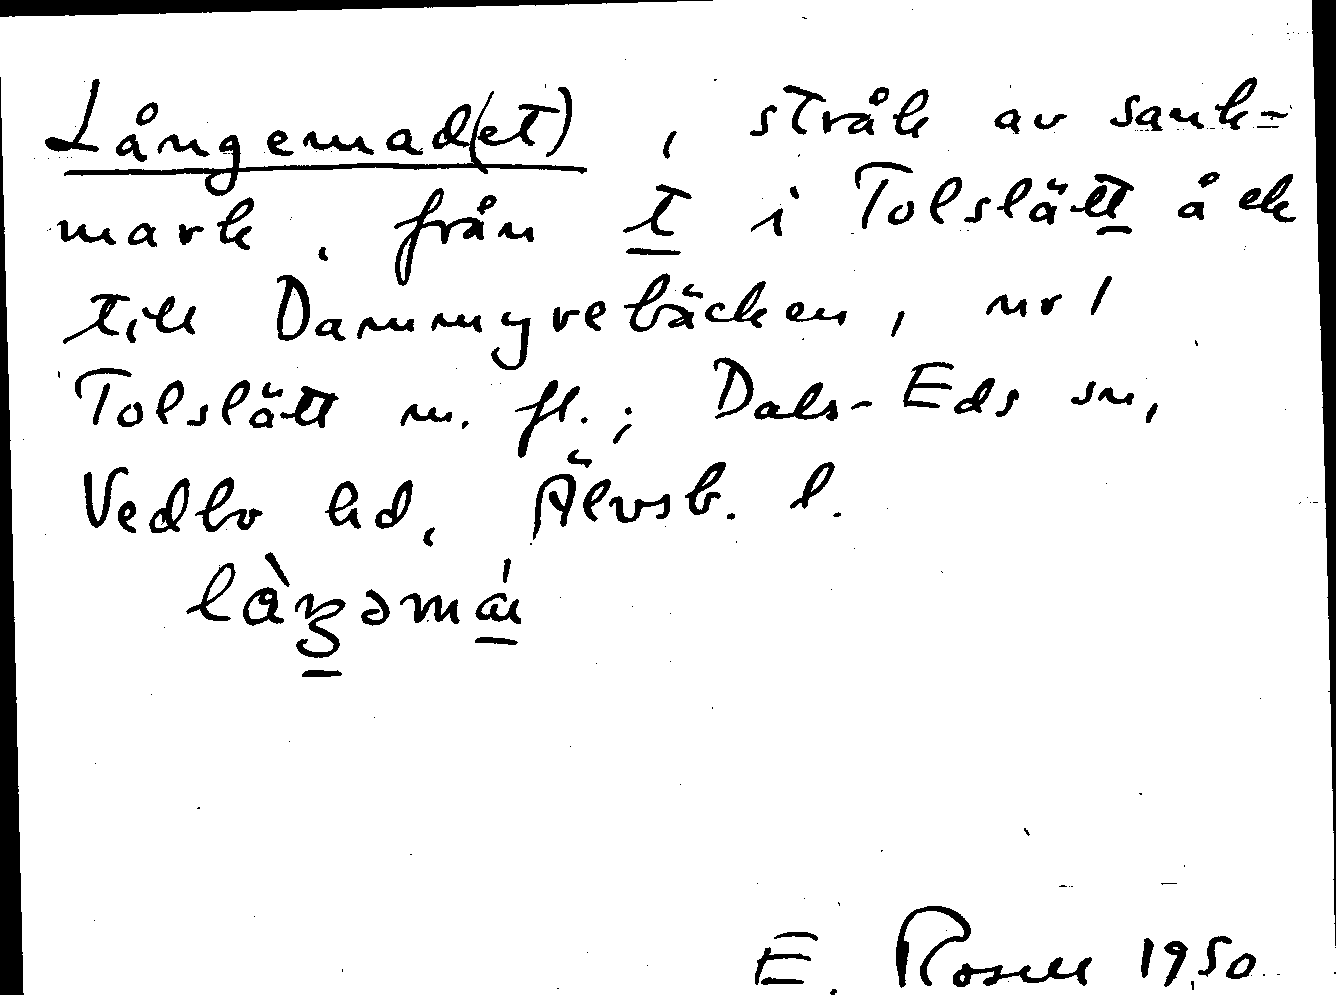 Långemad(et), stråk av sank=
mark, från t i Tolslätt å ek
till Dammyrebäcken, nr 1
Tolslätt m. fl.; Dals-Eds sn,
Vedbo hd, Älvsb. l.
E. Rosell 1950